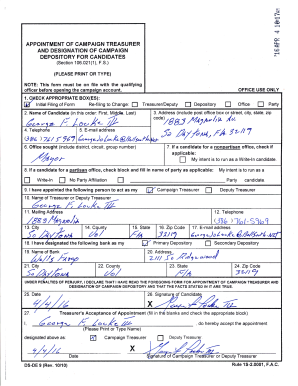 '16 APR 4 10:17am
APPOINTMENT OF CAMPAIGN TREASURER
AND DESIGNATION OF CAMPAIGN
DEPOSITORY FOR CANDIDATES
(Section 106.021(1), F.S.)
(PLEASE PRINT OR TYPE)
NOTE: This form must be on file with the qualifying
officer before opening the campaign account.
OFFICE USE ONLY
1. CHECK APPROPRIATE BOX(ES):
Initial Filing of Form Re-filing to Change: Treasurer/Deputy Depository Office Party
2. Name of Candidate (in this order: First, Middle, Last)
George F. Locke III
3. Address (include post office box or street, city, state, zip code)
1883 Magnolia Av
So Daytona, FLA 32119
4. Telephone
5. E-mail address
(386) 761-5969
6. Office sought (include district, circuit, group number)
Mayor
7. If a candidate for a nonpartisan office, check if applicable:
My intent is to run as a Write-In candidate.
8. If a candidate for a partisan office, check block and fill in name of party as applicable: My intent is to run as a
Write-In No Party Affiliation Party candidate.
9. I have appointed the following person to act as my Campaign Treasurer Deputy Treasurer
10. Name of Treasurer or Deputy Treasurer
George F. Locke III
11. Mailing Address
1883 Magnolia
12. Telephone
(386) 761-5969
13. City
So Daytona
14. County
Vol
15. State
FLA
16. Zip Code
32119
17. E-mail address
18. I have designated the following bank as my Primary Depository Secondary Depository
19. Name of Bank
Wells Fargo
20. Address
2111 So Ridgewood
21. City
So Daytona
22. County
Vol
23. State
FLA
24. Zip Code
32119
UNDER PENALTIES OF PERJURY, I DECLARE THAT I HAVE READ THE FOREGOING FORM FOR APPOINTMENT OF CAMPAIGN TREASURER AND
DESIGNATION OF CAMPAIGN DEPOSITORY AND THAT THE FACTS STATED IN IT ARE TRUE.
25. Date
4/4/16
26. Signature of Candidate
X
27. Treasurer's Acceptance of Appointment (fill in the blanks and check the appropriate block)
I, George F. Locke III, do hereby accept the appointment
(Please Print or Type Name)
designated above as: Campaign Treasurer Deputy Treasurer.
4/4/16
X
Date
Signature of Campaign Treasurer or Deputy Treasurer
DS-DE 9 (Rev. 10/10)
Rule 1S-2.0001, F.A.C.